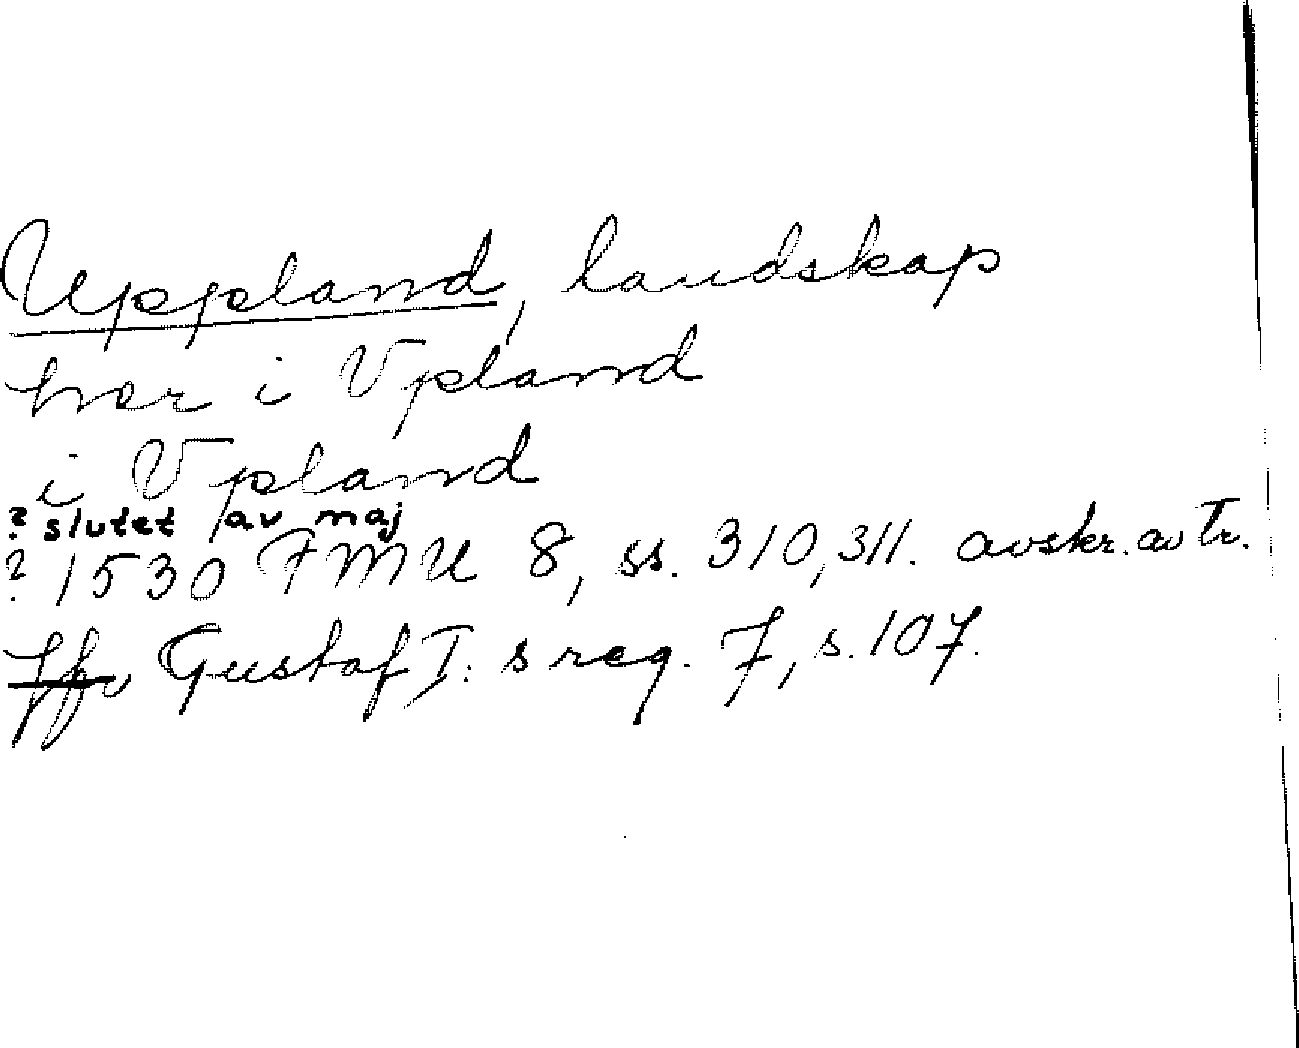 Uppland, landskap
her i Vpland
i Vpland
? slutet av maj
? 1530 FMU 8, ss. 310, 311. avskr. av Tr.
Jfr Gustaf I: s reg. 7, s. 107.